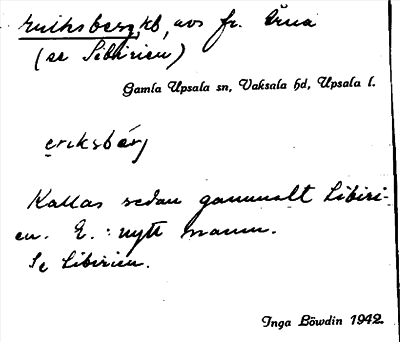 Eriksberg, kb, avs fr. Ärna
(se Sibirien)
Gamla Upsala sn, Vaksala hd, Upsala l.
eriksbérj
Kallas sedan gammalt Sibiri-
en. E.: nytt namn.
Se Sibirien.
Inga Löwdin 1942.